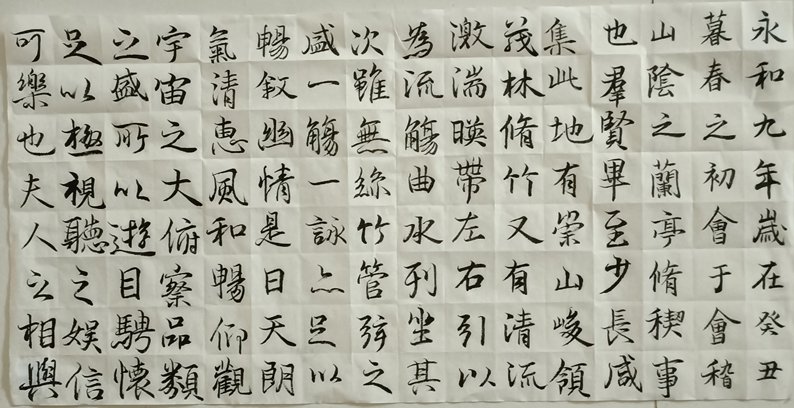 永和九年歲在癸丑
暮春之初會于會稽
山陰之蘭亭脩稧事
也羣賢畢至少長咸
集此地有崇山峻領
茂林脩竹又有清流
激湍暎帶左右引以
為流觴曲水列坐其
次雖無絲竹管弦之
盛一觴一詠亦足以
暢敘幽情是日天朗
氣清惠風和暢仰觀
宇宙之大俯察品類
之盛所以遊目騁懷
足以極視聽之娛信
可樂也夫人之相與